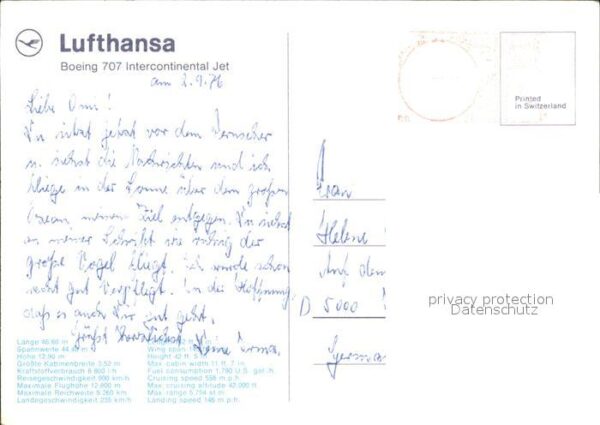 Lufthansa
Boeing 707 Intercontinental Jet
am 2.9.76
Liebe Omi!
Du sitzt jetzt vor dem Fernseher
u. siehst die Nachrichten und ich
fliege in der Sonne über dem großen
Ozean meinem Ziel entgegen. Du siehst
an meiner Schrift wie ruhig der
große Vogel fliegt. Ich wurde schon
recht gut verpflegt. In der Hoffnung,
daß es auch Dir gut geht,
Grüßt herzlichst Deine
Printed
in Switzerland
Frau
Helene
Auf dem
D 5000
Germa
privacy protection
Datenschutz
Länge 46.60 m
Spannweite 44.
Höhe 12.90 m
Größte Kabinenbreite 3.52 m
Kraftstoffverbrauch 6 800 l/h
Reisegeschwindigkeit 900 km/h
Maximale Flughöhe 12.800 m
Maximale Reichweite 9 260 km
Landegeschwindigkeit 235 km/h
Wing span
Height 42 ft.
Max. cabin width 11 ft. 7 in.
Fuel consumption 1,790 U.S. gal./h
Cruising speed 558 m.p.h.
Max. cruising altitude 42,000 ft.
Max. range 5,754 st.m.
Landing speed 146 m.p.h.